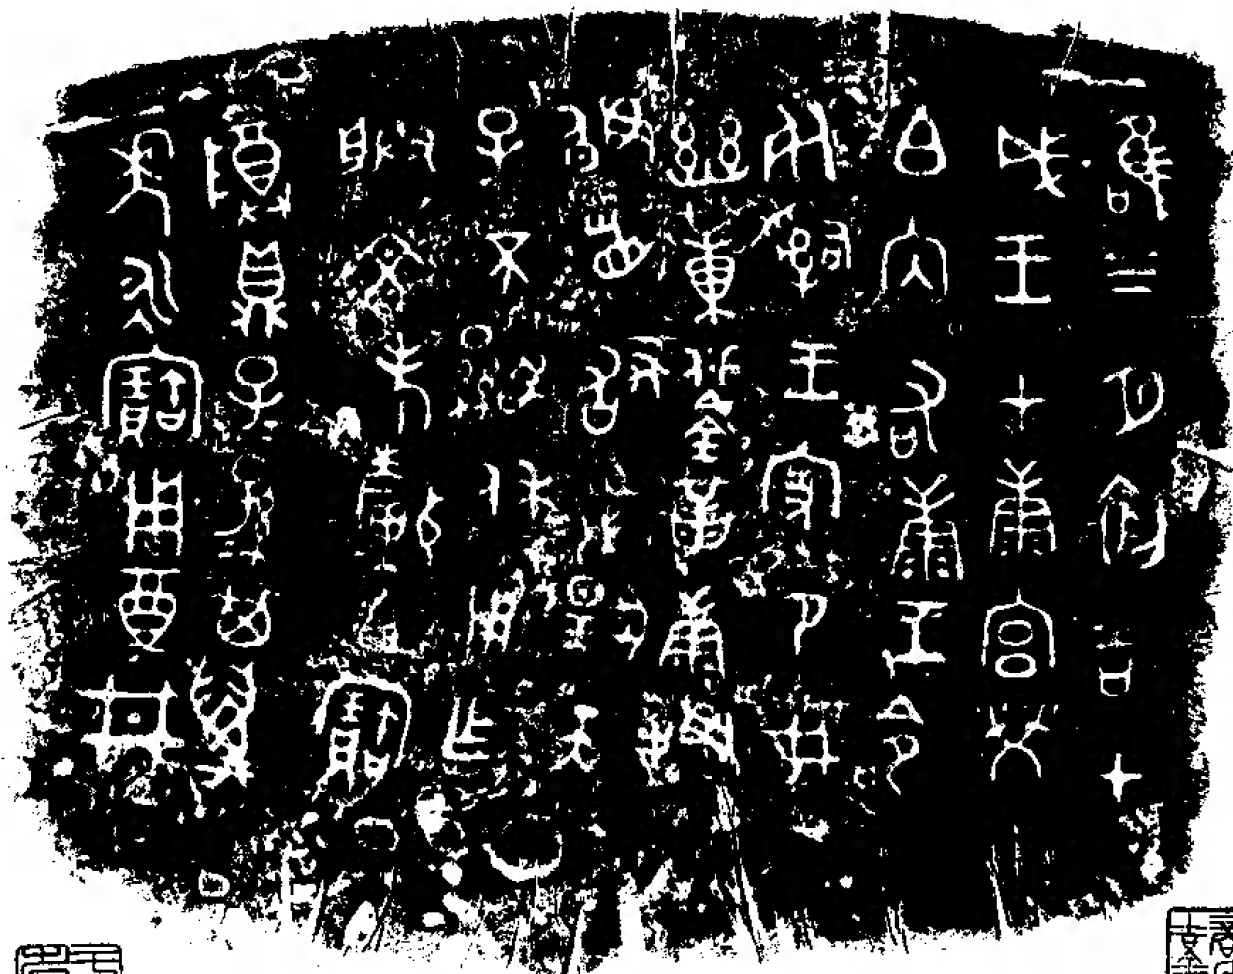 唯三月初吉甲
戌王才康宮𤇾
白內右康王命
死𤔲王家命女
幽黃鋚革康拜
𩒨首敢對揚天
子不顯休用乍
朕文考釐白寶
尊鼎子子孫孫其萬
年永寶用奠井